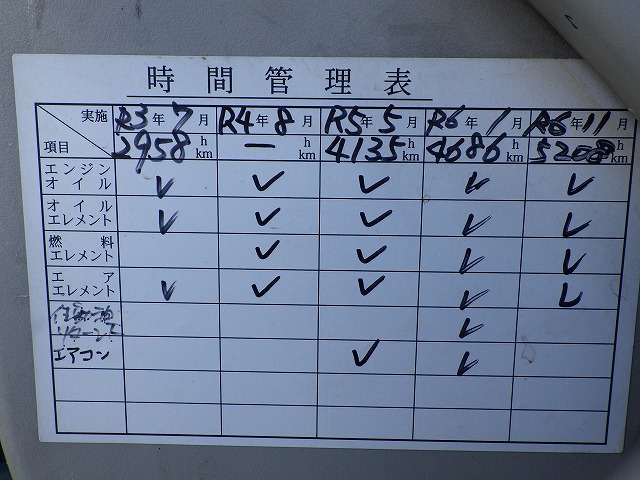 時間管理表
実施 R3年7月 R4年8月 R5年5月 R6年1月 R6年11月
項目 2958 h km ー h km 4135 h km 4686 h km 5208 h km
エンジン
オイル ✓ ✓ ✓ ✓ ✓
オイル
エレメント ✓ ✓ ✓ ✓ ✓
燃料
エレメント ✓ ✓ ✓ ✓
エア
エレメント ✓ ✓ ✓ ✓ ✓
✓
エアコン ✓ ✓